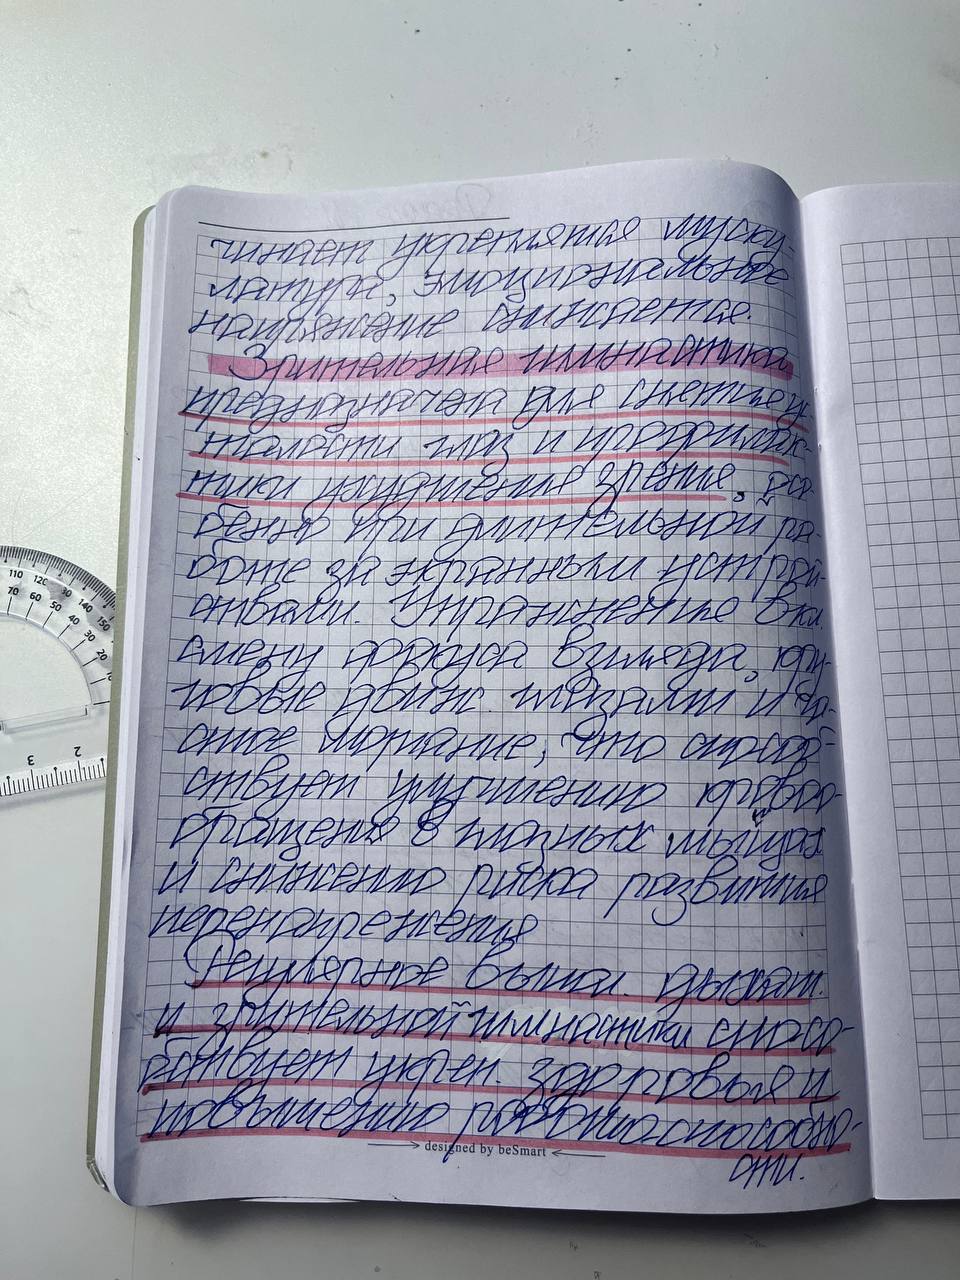 чинает укрепляться муску-
латура, эмоциональное
напряжение снижается.
Зрительная гимнастика
предназначена для снятия у-
талости глаз и профилак-
тики ухудшения зрения, осо-
бенно при длительной ра-
боте за экранными устрой-
ствами. Упражнение вкл.
смену фокуса взгляда, кру-
говые движ. глазами и ча-
стое моргание, что способ-
ствует улучшению кровоо-
бращения в глазных мышцах
и снижению риска развития
перенапряжения
Регулярное выполн. дыхат.
и зрительной гимнастики спосо-
бствует укреп. здоровья и
повышению работоспособно-
сти.
designed by beSmart
110 120 130 140 150
70 60 50 40 30 20
3 2